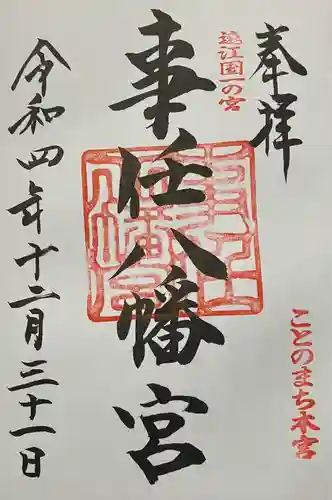 奉拝
遠江国一の宮
ことのまち本宮
事任八幡宮
令和四年十二月三十一日